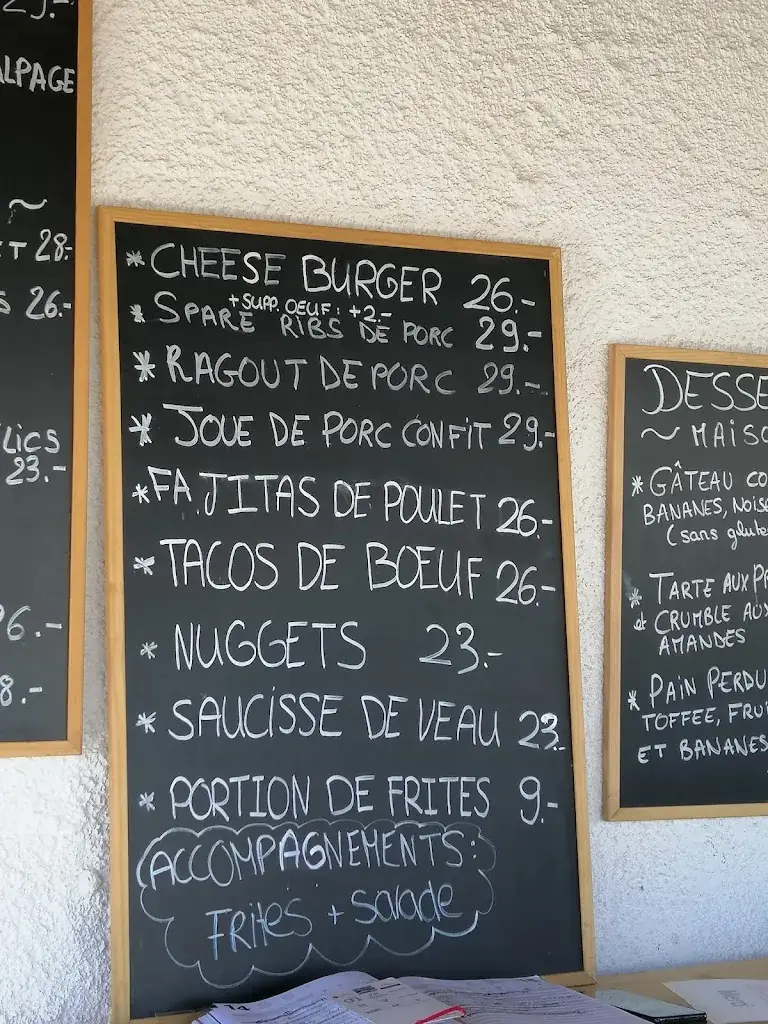 29.-
ALPAGE
~
28.-
26.-
23.-
* CHEESE BURGER 26.-
+ SUPP. OEUF : +2.-
* SPARE RIBS DE PORC 29.-
* RAGOUT DE PORC 29.-
* JOUE DE PORC CONFIT 29.-
* FAJITAS DE POULET 26.-
* TACOS DE BOEUF 26.-
* NUGGETS 23.-
* SAUCISSE DE VEAU 23.-
* PORTION DE FRITES 9.-
ACCOMPAGNEMENTS:
Frites + Salade
DESSE
~ MAISO
* GÂTEAU CO
BANANES, NOISE
(sans glute
* TARTE AUX P
et CRUMBLE AUX
AMANDES
* PAIN PERDU
TOFFEE, FRUI
ET BANANES